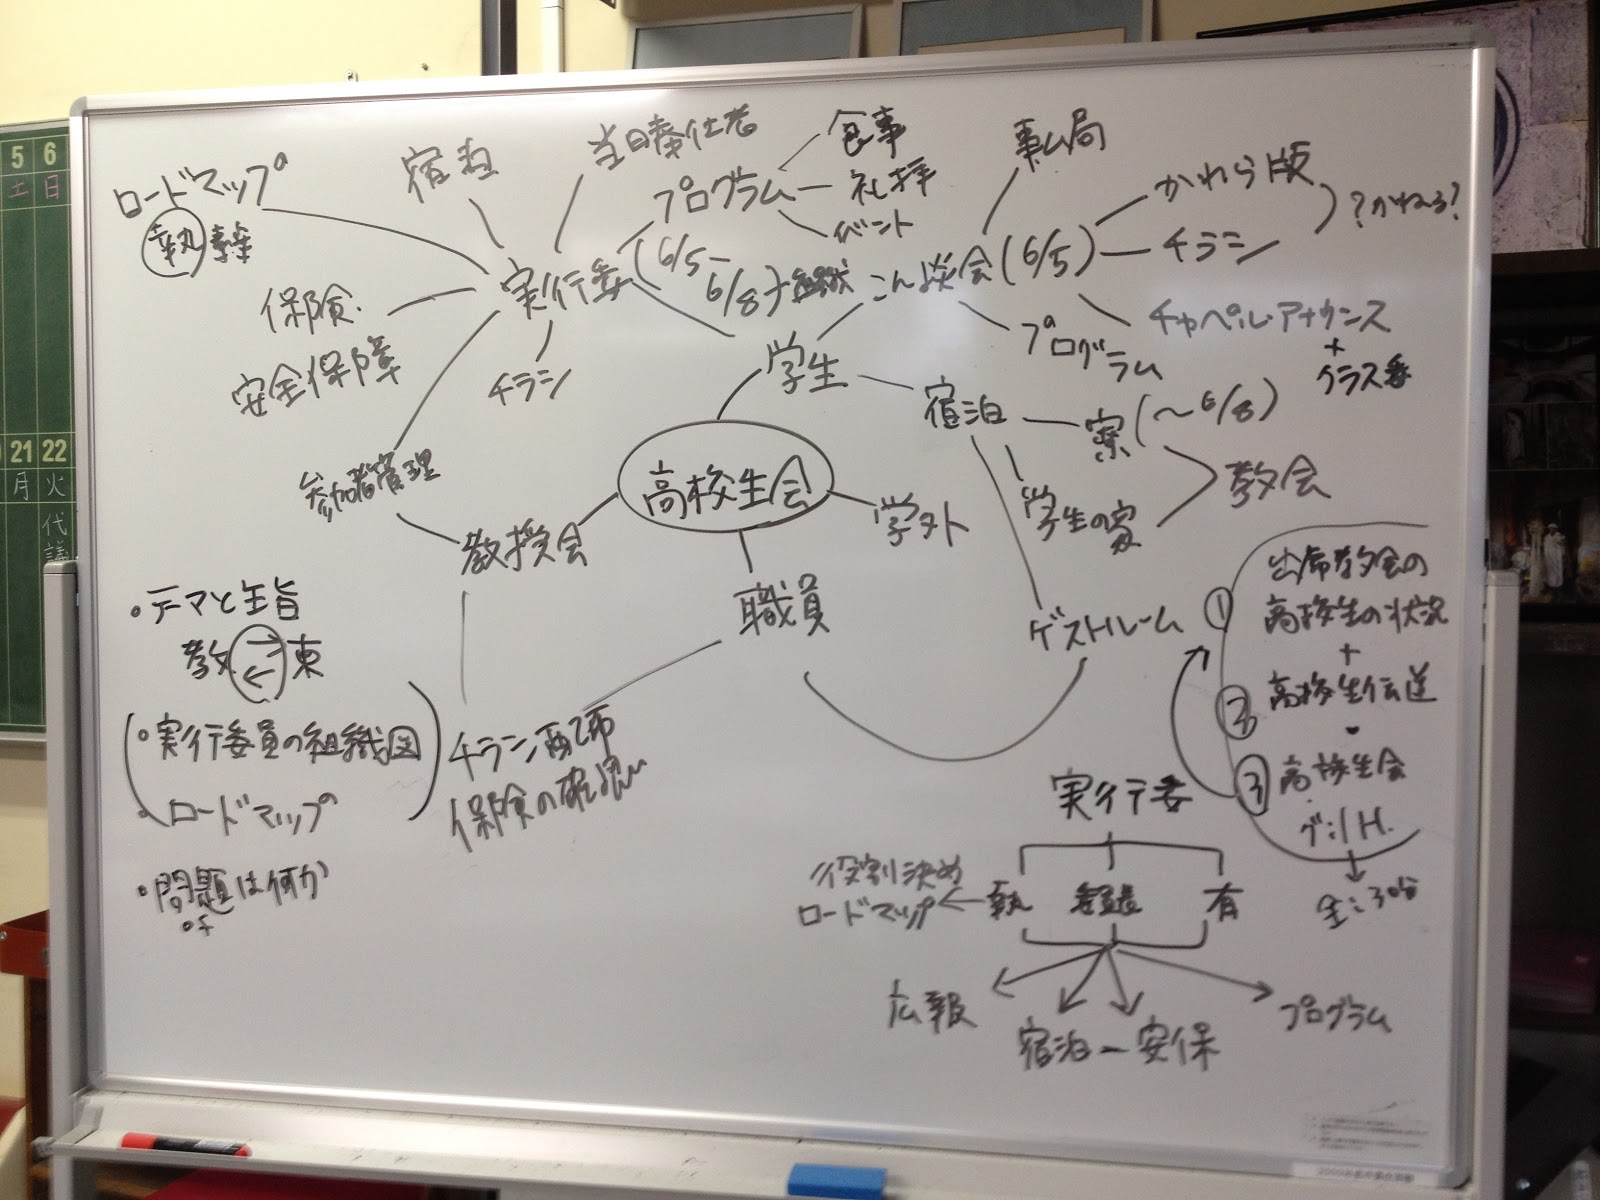 ロードマップ
執事
宿泊
当日奉仕者
プログラム
食事
礼拝
イベント
事ム局
かわら版
チラシ
?かねる?
実行委
(6/5-
6/8)
組織
こん談会(6/5)
保険.
安全保障
チラシ
学生
プログラム
チャペル・アナウンス
+
クラス委
宿泊
寮(〜6/8)
教会
学生の家
参加者管理
高校生会
学外
教授会
職員
ゲストルーム
・テーマと主旨
教⇄東
・実行委員の組織図
・ロードマップ
・問題は何か
チラシ配布
保険の確認
① 出席教会の
高校生の状況
+
② 高校生伝道
③ 高校生会
生:30分
実行委
役割決め
ロードマップ
執
有
広報
宿泊ー安保
プログラム
5 6
土 日
21 22
月 火
代
議